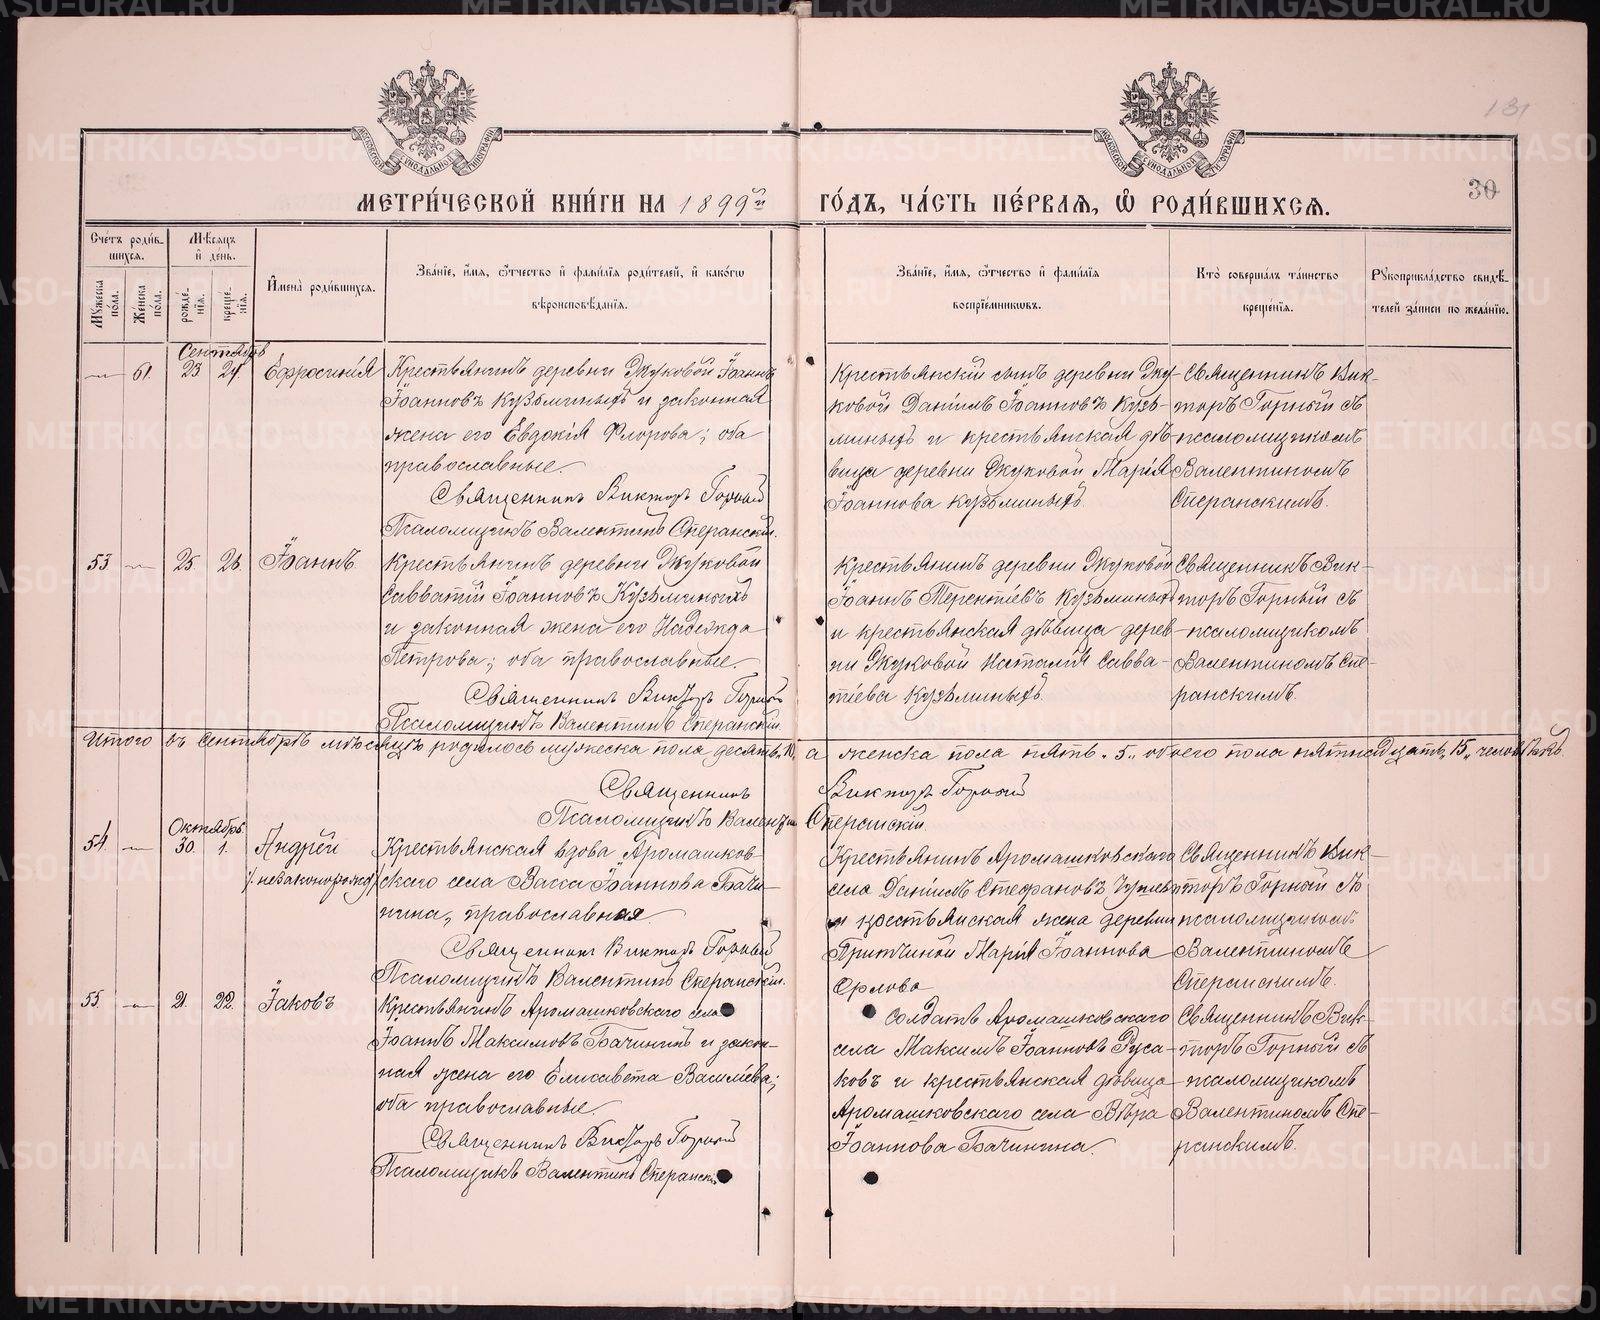 131
30
МЕТРИ́ЧЕСКОЙ КНИ́ГИ НА 1899й ГО́ДЪ, ЧА́СТЬ ПЕ́РВАЯ, Ѽ РОДИ́ВШИХСЯ.
Сче́тъ роди́в-
шихся.
Мꙋжеска пола.
Женска пола.
Мѣсяцъ
и҆ де́нь.
рожде́-
нїя.
креще́-
нїя.
И҆мена̀ роди́вшихся.
Зва́нїе, и҆́мя, ѻ҆́тчество и҆ фами́лїя роди́телей, и҆ како́гѡ
вѣроисповѣ́данїя.
Зва́нїе, и҆́мя, ѻ҆́тчество и҆ фами́лїя
воспрїе́мниковъ.
Кто̀ соверша́лъ та́инство
креще́нїя.
Рꙋкоприкла́дство свидѣ́-
телей за́писи по жела́нїю.
Сентябрь
— 61. 23 24. Ефросинія
Крестьянинъ деревни Жуковой Іоаннъ
Іоанновъ Кузьминыхъ и законная
жена его Евдокія Флорова; оба
православные.
Священникъ Викторъ Горный
Псаломщикъ Валентинъ Сперанскій.
Крестьянскій сынъ деревни Жу-
ковой Даніилъ Іоанновъ Кузь-
миныхъ и крестьянская дѣ-
вица деревни Жуковой Марія
Іоаннова Кузьминыхъ.
Священникъ Вик-
торъ Горный съ
псаломщикомъ
Валентиномъ
Сперанскимъ.
53 — 25. 26. Іоаннъ
Крестьянинъ деревни Жуковой
Савватій Іоанновъ Кузьминыхъ
и законная жена его Надежда
Петрова; оба православные.
Священникъ Викторъ Горный
Псаломщикъ Валентинъ Сперанскій
Крестьянинъ деревни Жуковой
Іоаннъ Терентіевъ Кузьминыхъ
и крестьянская дѣвица дерев-
ни Жуковой Наталія Савва-
тіева Кузьминыхъ.
Священникъ Вик-
торъ Горный съ
псаломщикомъ
Валентиномъ Спе-
ранскимъ.
Итого въ Сентябрѣ мѣсяцѣ родилось мужеска пола десять „10„ а женска пола пять „5„ обоего пола пятнадцать „15„ человѣкъ.
Священникъ Викторъ Горный
Псаломщикъ Валентинъ Сперанскій.
Октябрь
54 — 30. 1. Андрей
незаконорожд.
Крестьянская вдова Аромашков-
скаго села Васса Іоаннова Бачи-
нина, православная
Священникъ Викторъ Горный
Псаломщикъ Валентинъ Сперанскій.
Крестьянинъ Аромашковскаго
села Даніилъ Стефановъ
и крестьянская жена деревни
Марія Іоаннова
Орлова
Священникъ Вик-
торъ Горный съ
псаломщикомъ
Валентиномъ
Сперанскимъ.
55 — 21. 22. Іаковъ
Крестьянинъ Аромашковскаго села
Іоаннъ Максимовъ Бачининъ и закон-
ная жена его Елисавета Василіева;
оба православные.
Священникъ Викторъ Горный
Псаломщикъ Валентинъ Сперанскій
Солдатъ Аромашковскаго
села Максимъ Іоанновъ Руса-
ковъ и крестьянская дѣвица
Аромашковскаго села Вѣра
Іоаннова Бачинина.
Священникъ Вик-
торъ Горный съ
псаломщикомъ
Валентиномъ Спе-
ранскимъ.
METRIKI.GASO-URAL.RU